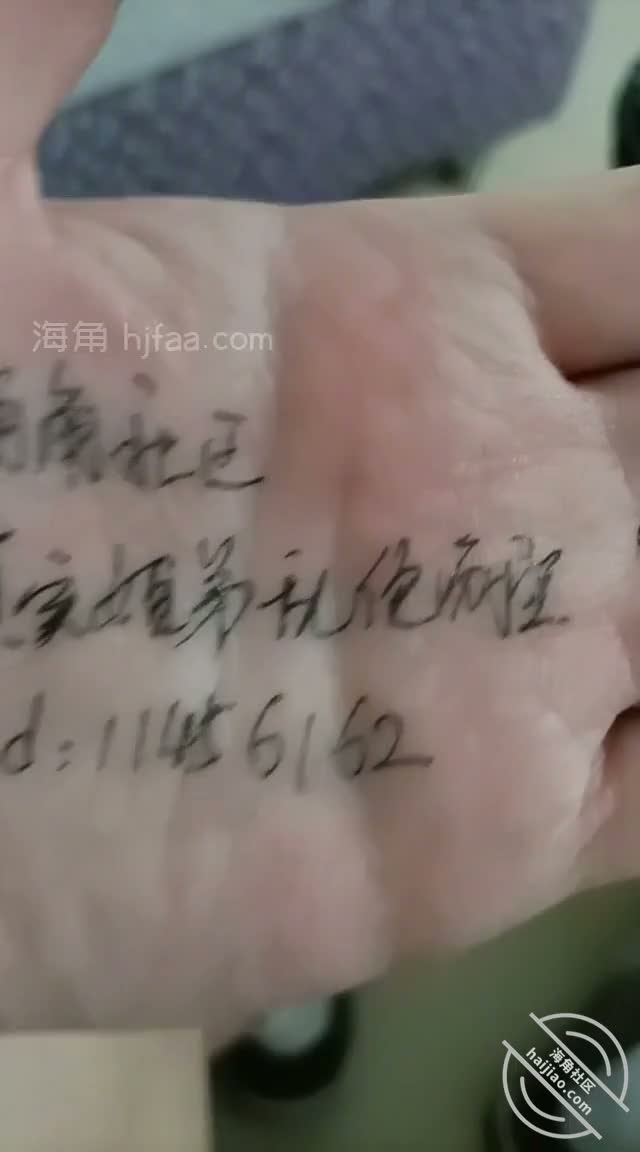 海角 hjfaa.com
海角社区
真实姐弟乱伦历程
id:11456162
海角社区
haijiao.com